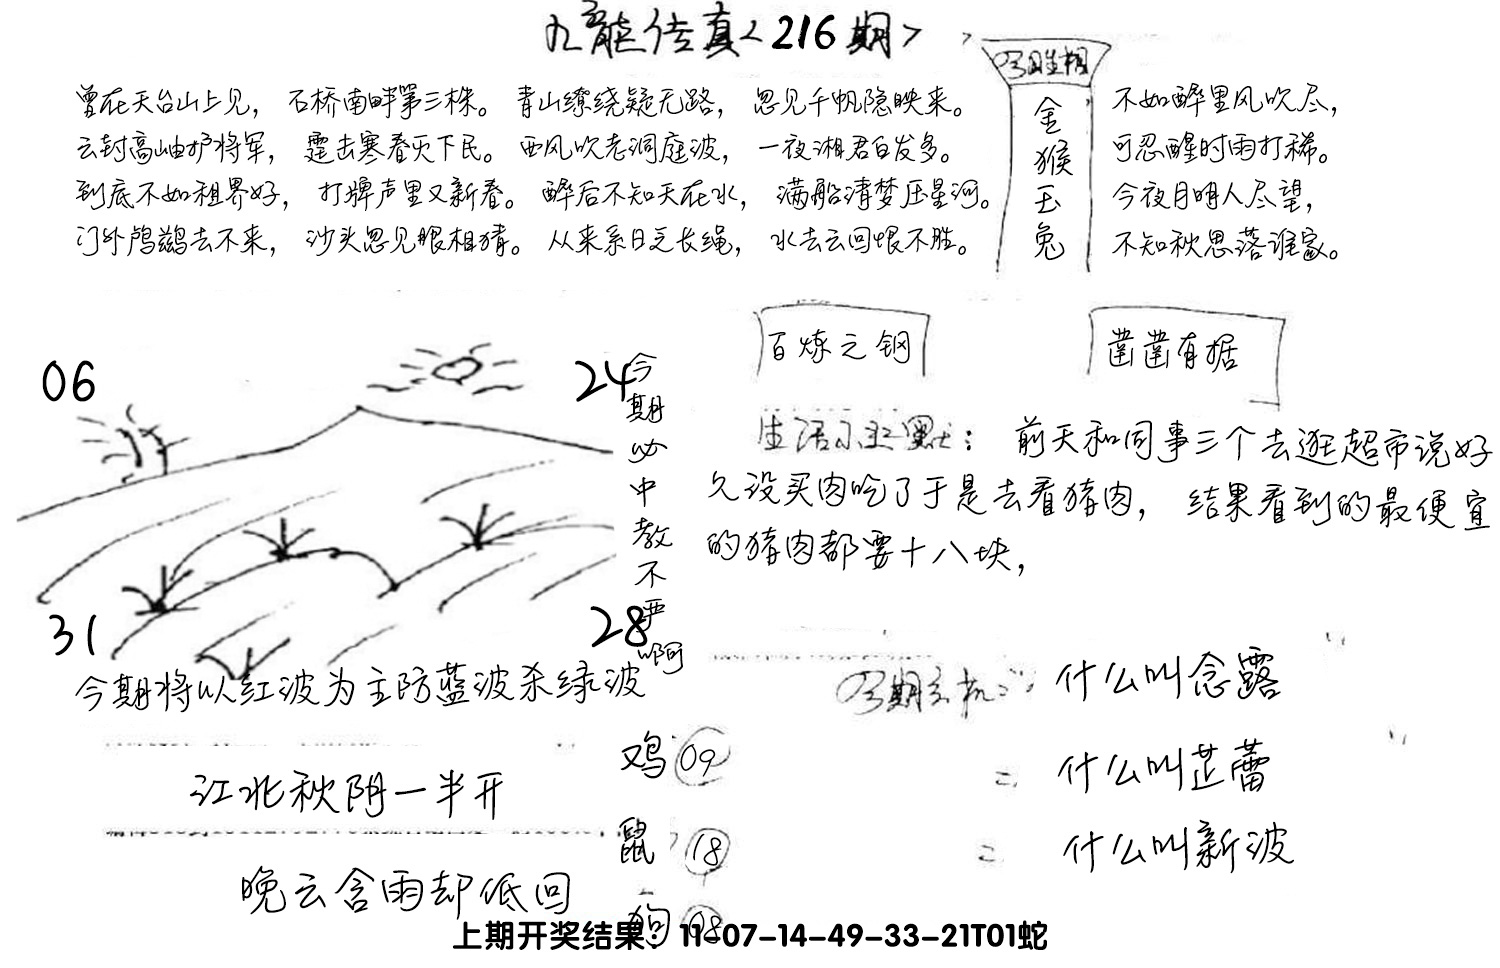 九龙传真<216期>
曾在天台山上见，石桥南畔第三株。青山缭绕疑无路，忽见千帆隐映来。
云封高岫护将军，霆击寒春灭下民。西风吹老洞庭波，一夜湘君白发多。
到底不如租界好，打牌声里又新春。醉后不知天在水，满船清梦压星河。
门外鸬鹚去不来，沙头忽见眼相猜。从来系日乏长绳，水去云回恨不胜。
今期生相
金
猴
玉
兔
不如醉里风吹尽，
可忍醒时雨打稀。
今夜月明人尽望，
不知秋思落谁家。
百炼之钢
凿凿有据
06
24
31
28
今期必中教不严啊
生活小幽默：前天和同事三个去逛超市说好
久没买肉吃了于是去看猪肉，结果看到的最便宜
的猪肉都要十八块，
今期将以红波为主防蓝波杀绿波
今期玄机：什么叫念露
什么叫芷蕾
什么叫新波
江北秋阴一半开
晚云含雨却低回
鸡 09
鼠 18
狗 08
上期开奖结果：11-07-14-49-33-21T01蛇